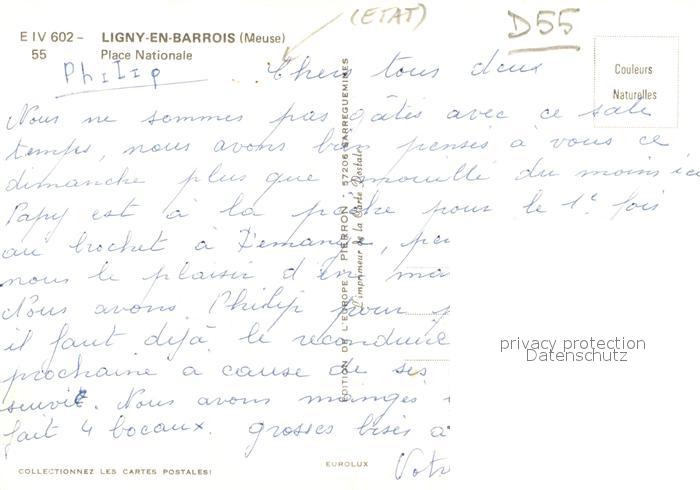 E IV 602 - LIGNY-EN-BARROIS (Meuse)
55 Place Nationale
(ETAT)
D55
Couleurs
Naturelles
Philip
Chers tous deux
Nous ne sommes pas gâtés avec ce sale
temps, nous avons bien pensés à vous ce
dimanche plus que mouillé du moins ici
Papy est à la pêche pour le 1e fois
au brochet à
nous le plaisir d'en
Nous avons Philip pour
il faut déjà le reconduire
prochaine a cause de ses
Nous avons mangés
fait 4 bocaux. grosses bises à
EDITION DE L'EUROPE - PIERRON - 57206 SARREGUEMINES
L'imprimeur de la Carte Postale
privacy protection
Datenschutz
EUROLUX
COLLECTIONNEZ LES CARTES POSTALES!